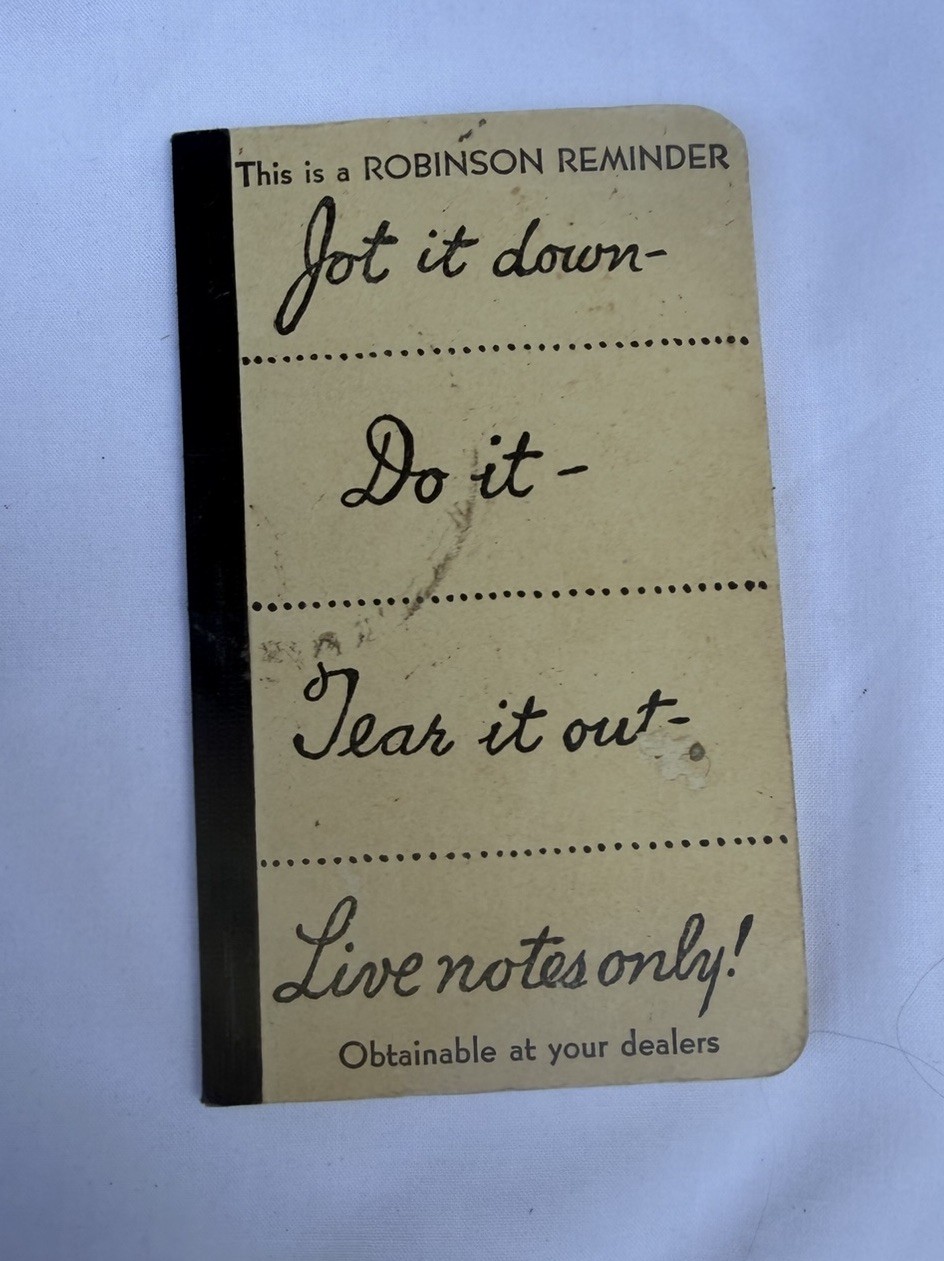 This is a ROBINSON REMINDER
Jot it down-
Do it -
Tear it out-
Live notes only!
Obtainable at your dealers